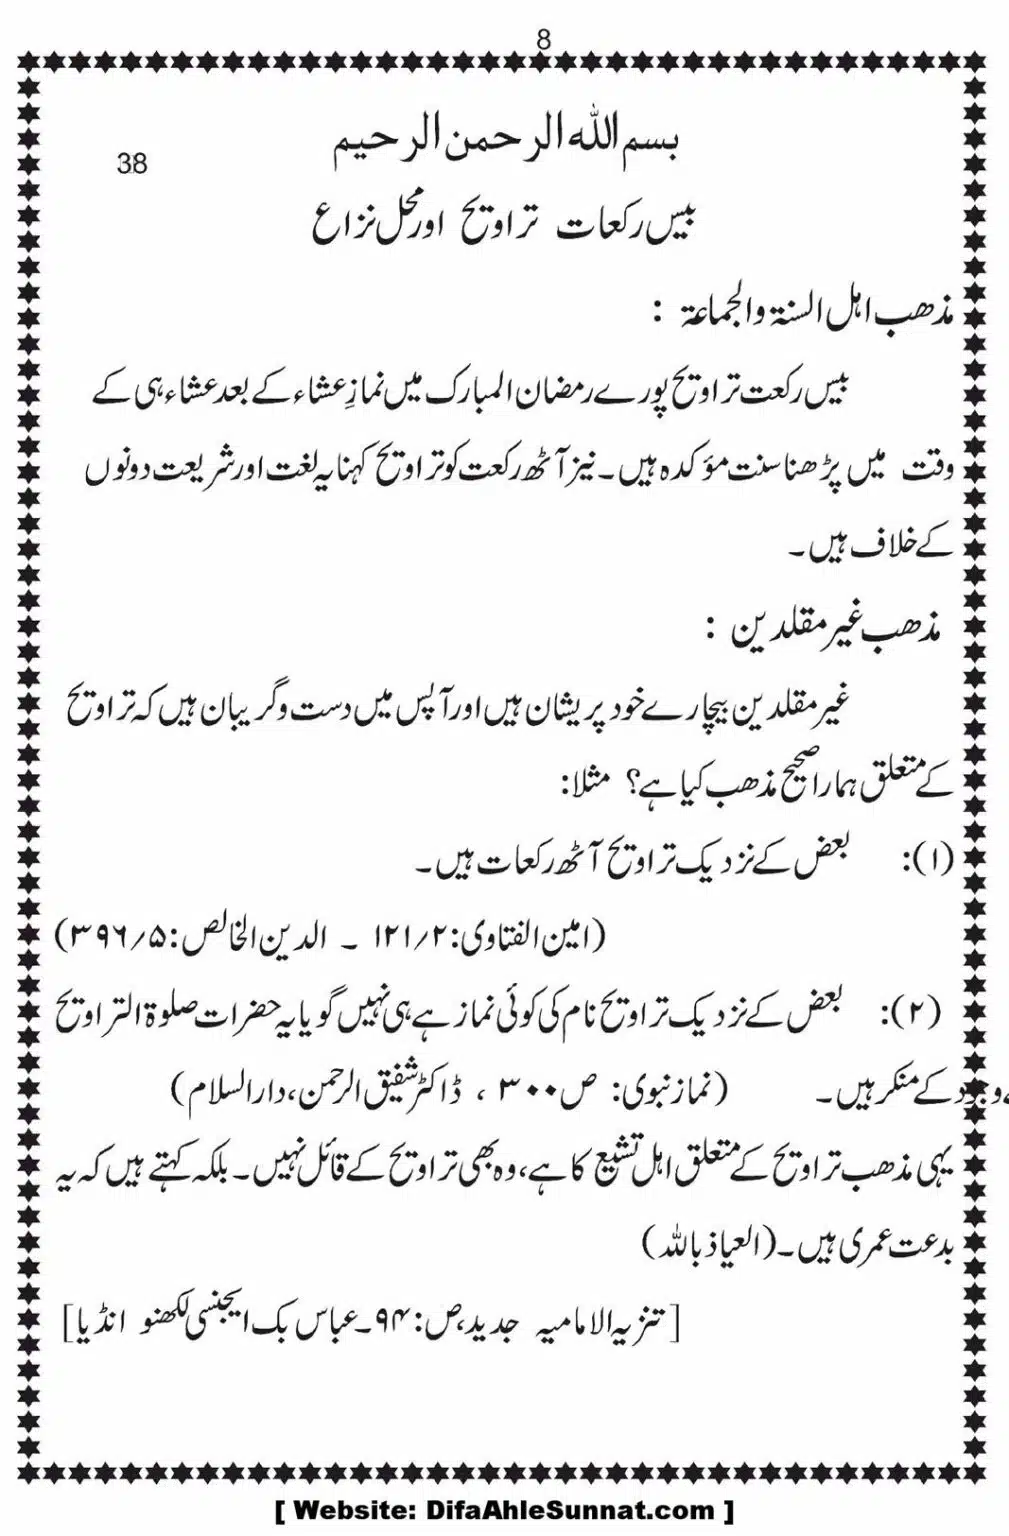 8
بسم اللہ الرحمن الرحیم
38
بیس رکعات تراویح اور محل نزاع
مذھب اہل السنۃ والجماعۃ :
بیس رکعت تراویح پورے رمضان المبارک میں نمازِ عشاء کے بعد عشاء ہی کے
وقت میں پڑھنا سنت مؤکدہ ہیں۔ نیز آٹھ رکعت کو تراویح کہنا یہ لغت اور شریعت دونوں
کے خلاف ہیں۔
مذھب غیر مقلدین :
غیر مقلدین بیچارے خود پریشان ہیں اور آپس میں دست وگریبان ہیں کہ تراویح
کے متعلق ہمارا صحیح مذھب کیا ہے؟ مثلا:
(۱): بعض کے نزدیک تراویح آٹھ رکعات ہیں۔
(امین الفتاوی: ۲/۱۲۱ ۔ الدین الخالص: ۵/۳۹۶)
(۲): بعض کے نزدیک تراویح نام کی کوئی نماز ہے ہی نہیں گویا یہ حضرات صلوۃ التراویح
کے وجود کے منکر ہیں۔ (نماز نبوی: ص ۳۰۰ ، ڈاکٹر شفیق الرحمن، دارالسلام)
یہی مذھب تراویح کے متعلق اہل تشیع کا ہے، وہ بھی تراویح کے قائل نہیں۔ بلکہ کہتے ہیں کہ یہ
بدعت عمری ہیں۔ (العیاذ باللہ)
[تنزیہ الامامیہ جدید، ص: ۹۴۔ عباس بک ایجنسی لکھنو انڈیا]
[ Website: DifaAhleSunnat.com ]